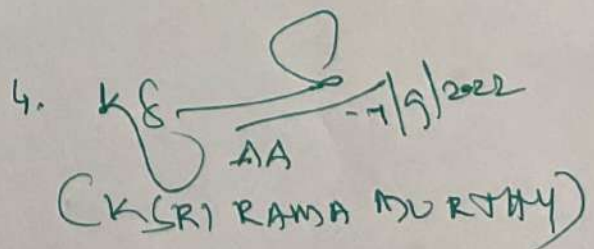 4. KS -7/9/2022
AA
(K SRI RAMA MURTHY)